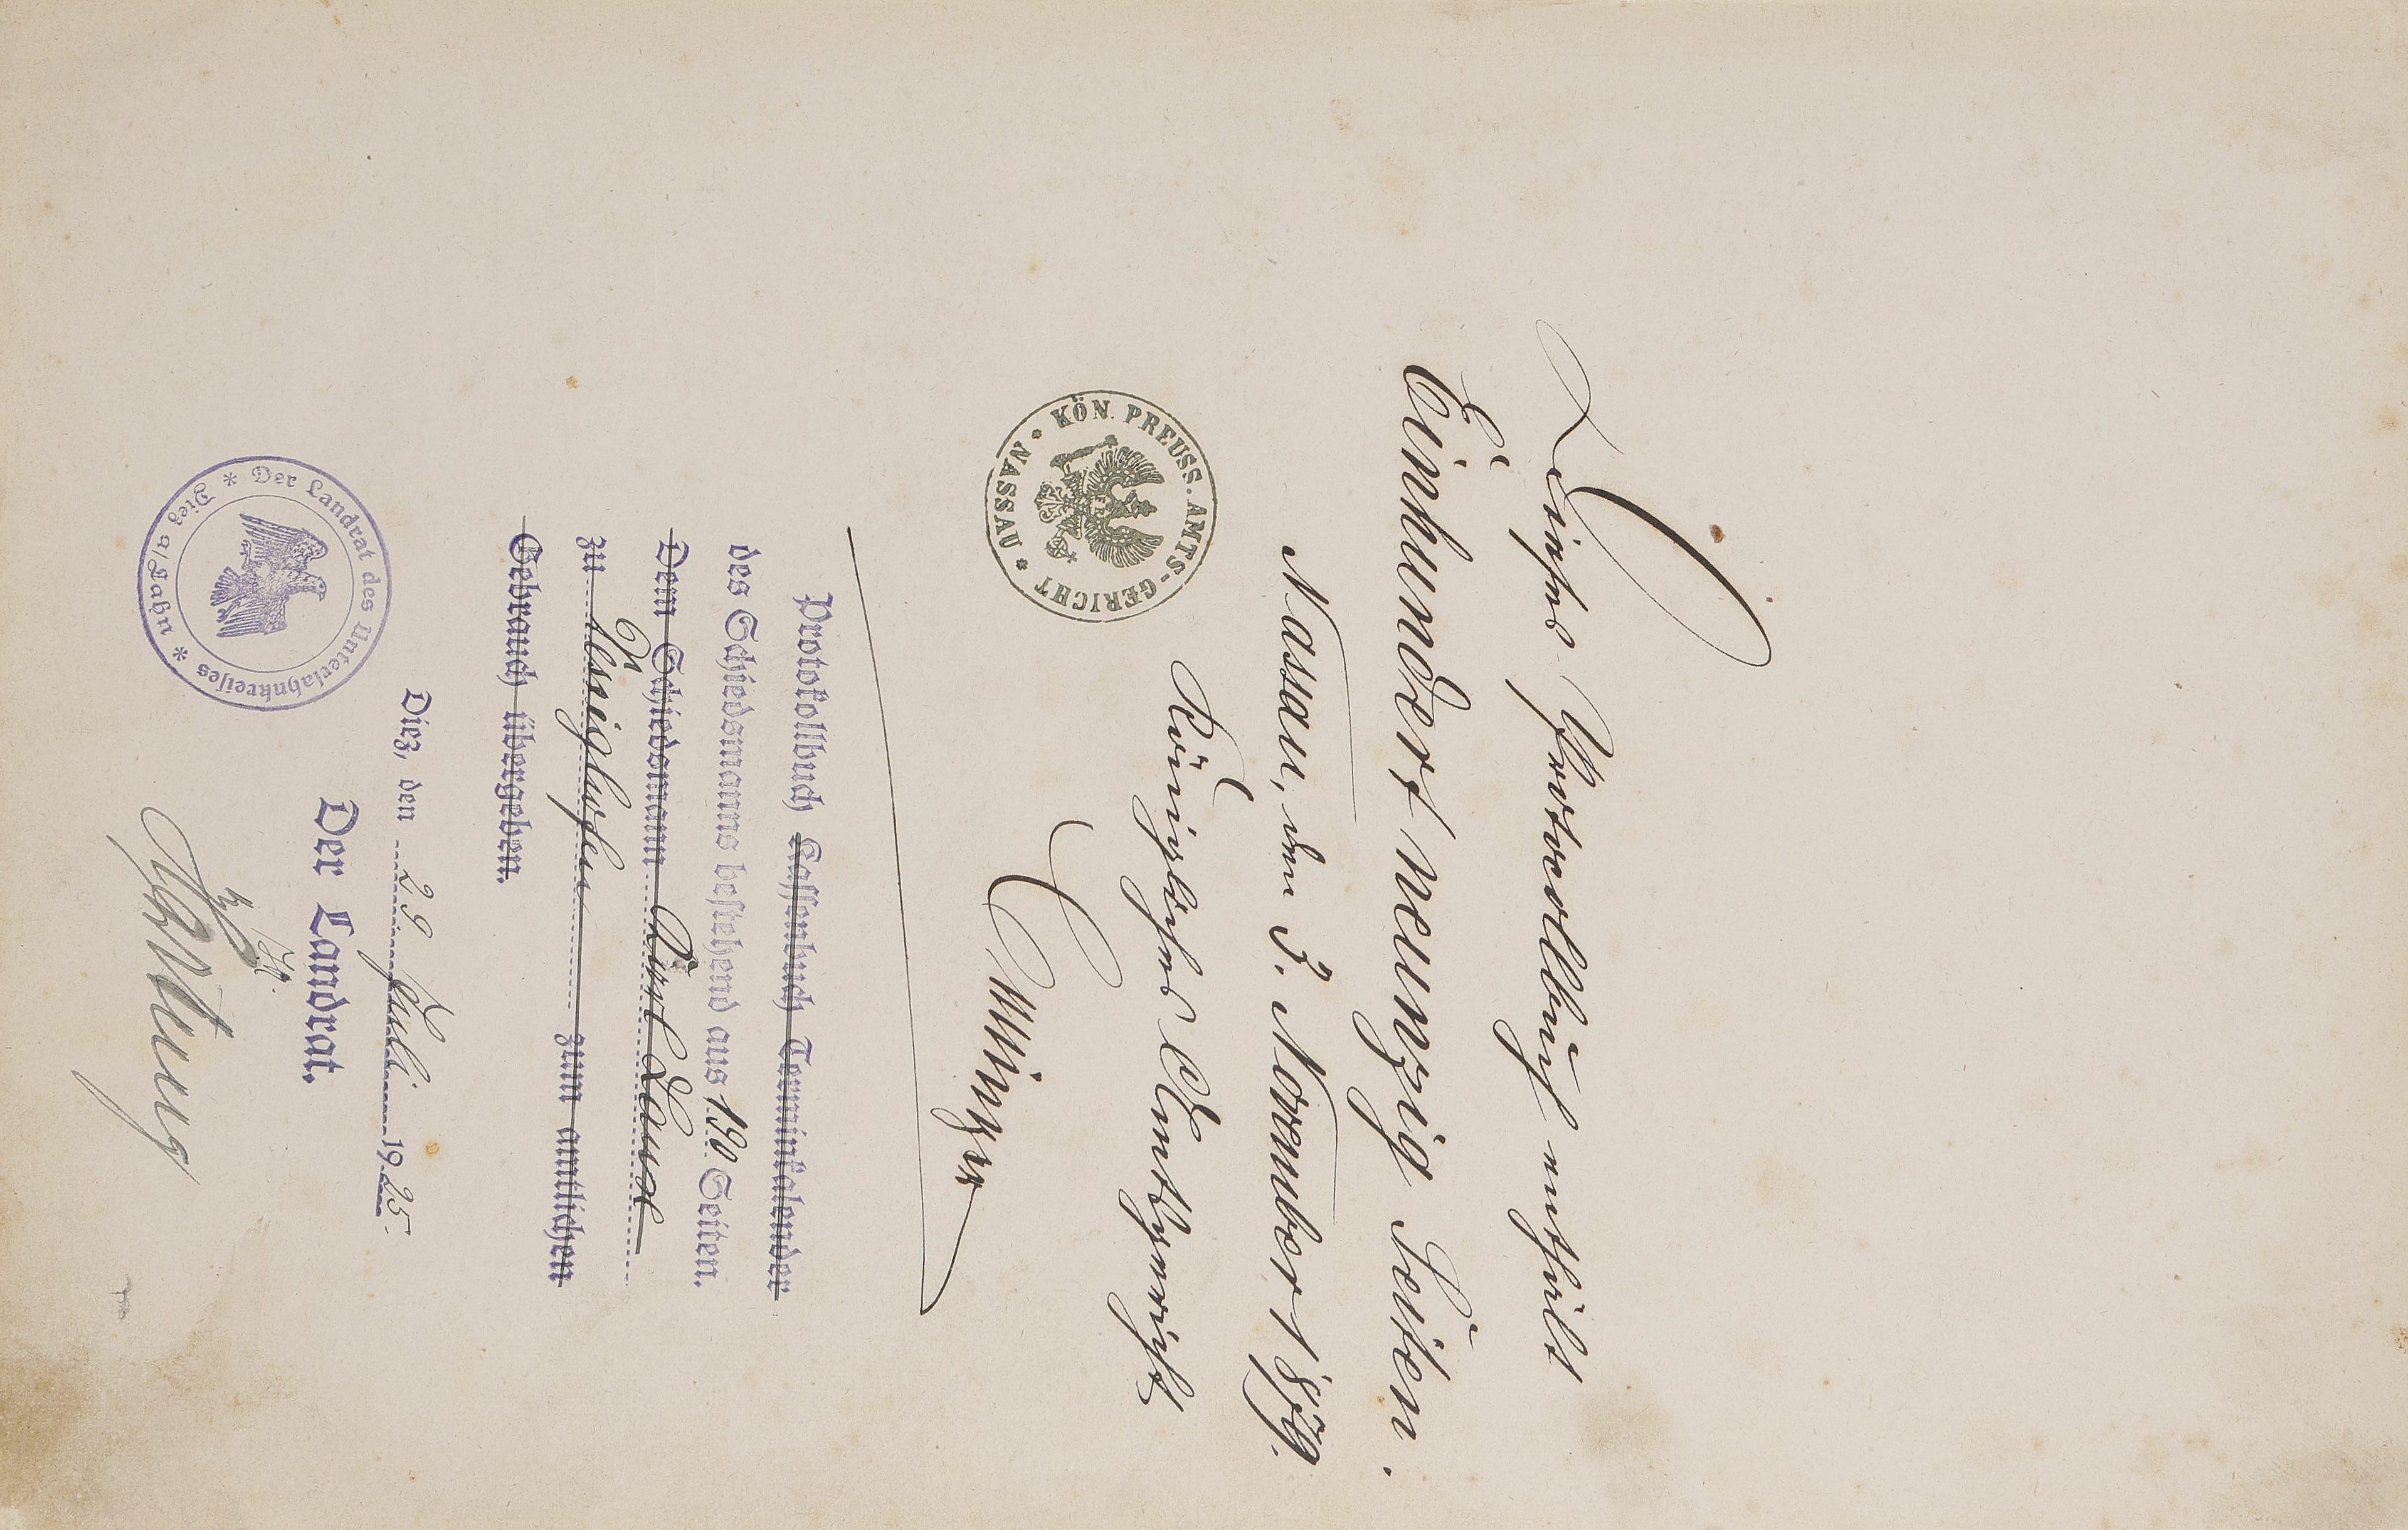 Dieses Protocollbuch enthält
Einhundert neunzig Seiten.
Nassau, den 3. November 1879.
Königliches Amtsgericht
KÖN. PREUSS. AMTS-GERICHT * NASSAU *
Protokollbuch Kassenbuch Terminkalender
des Schiedsmanns bestehend aus 190 Seiten.
Dem Schiedsmann Karl
zu zum amtlichen
Gebrauch übergeben.
Diez, den 29 Juli 1925
Der Landrat.
* Der Landrat des Unterlahnkreises * Diez a/Lahn